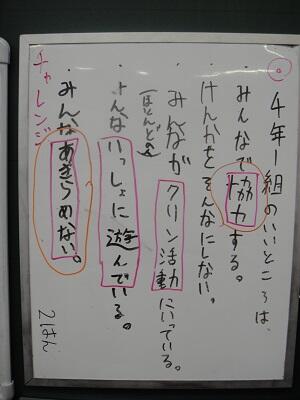 4年1組のいいところは、
・みんなで協力する。
・けんかをそんなにしない。
・みんながクリーン活動にいっている。
(ほとんどの)
・みんないっしょに遊んでいる。
・みんなあきらめない。
チャレンジ
2はん